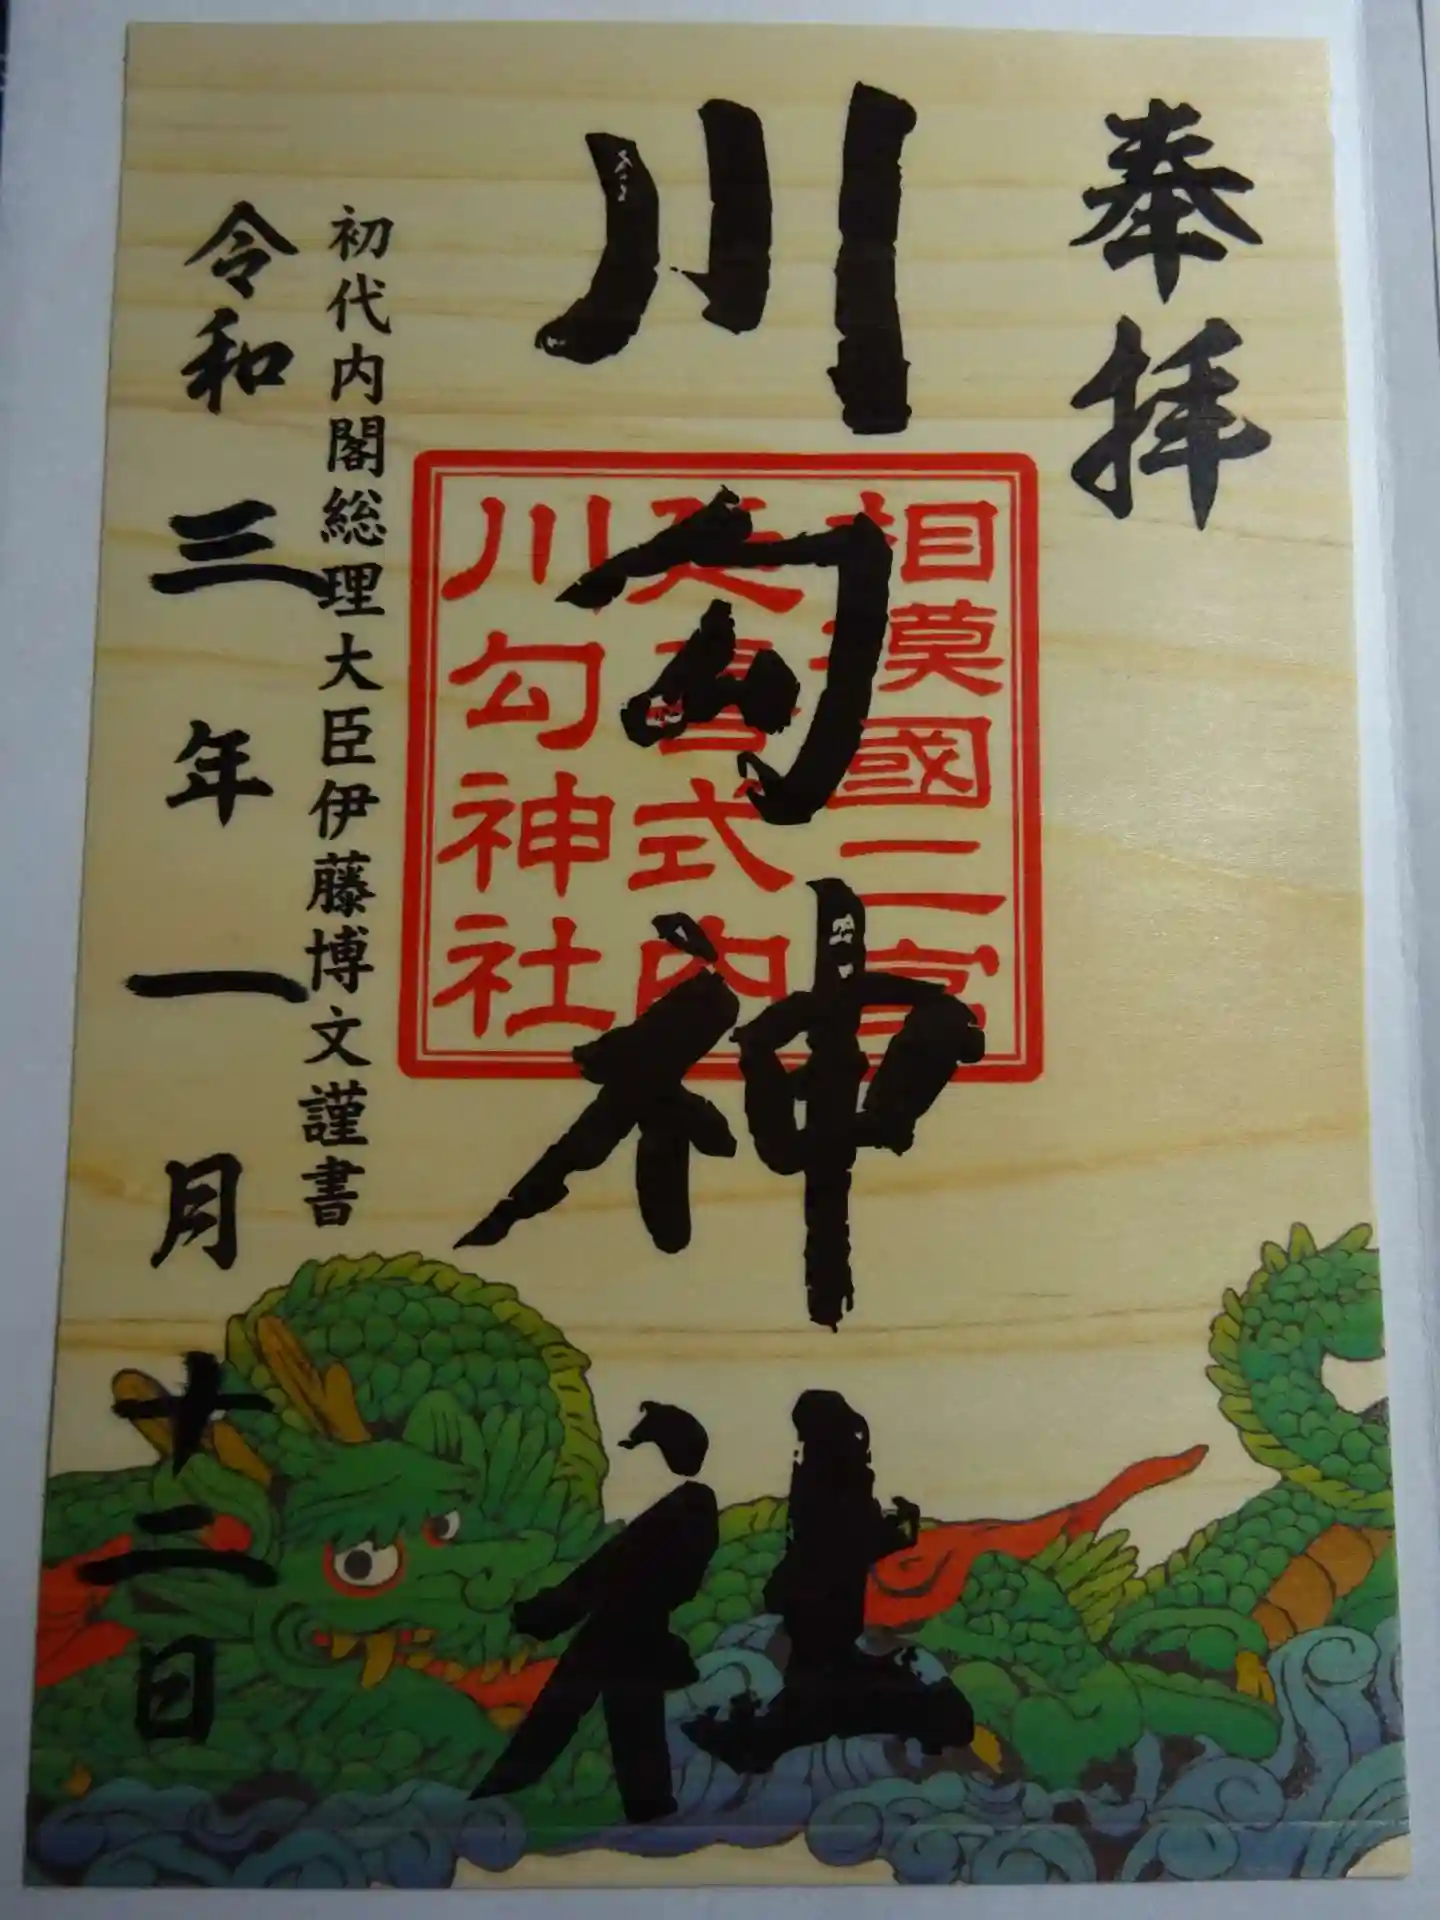 奉拝
川勾神社
相模國二宮
延喜式内
川勾神社
初代内閣総理大臣伊藤博文謹書
令和三年一月十二日